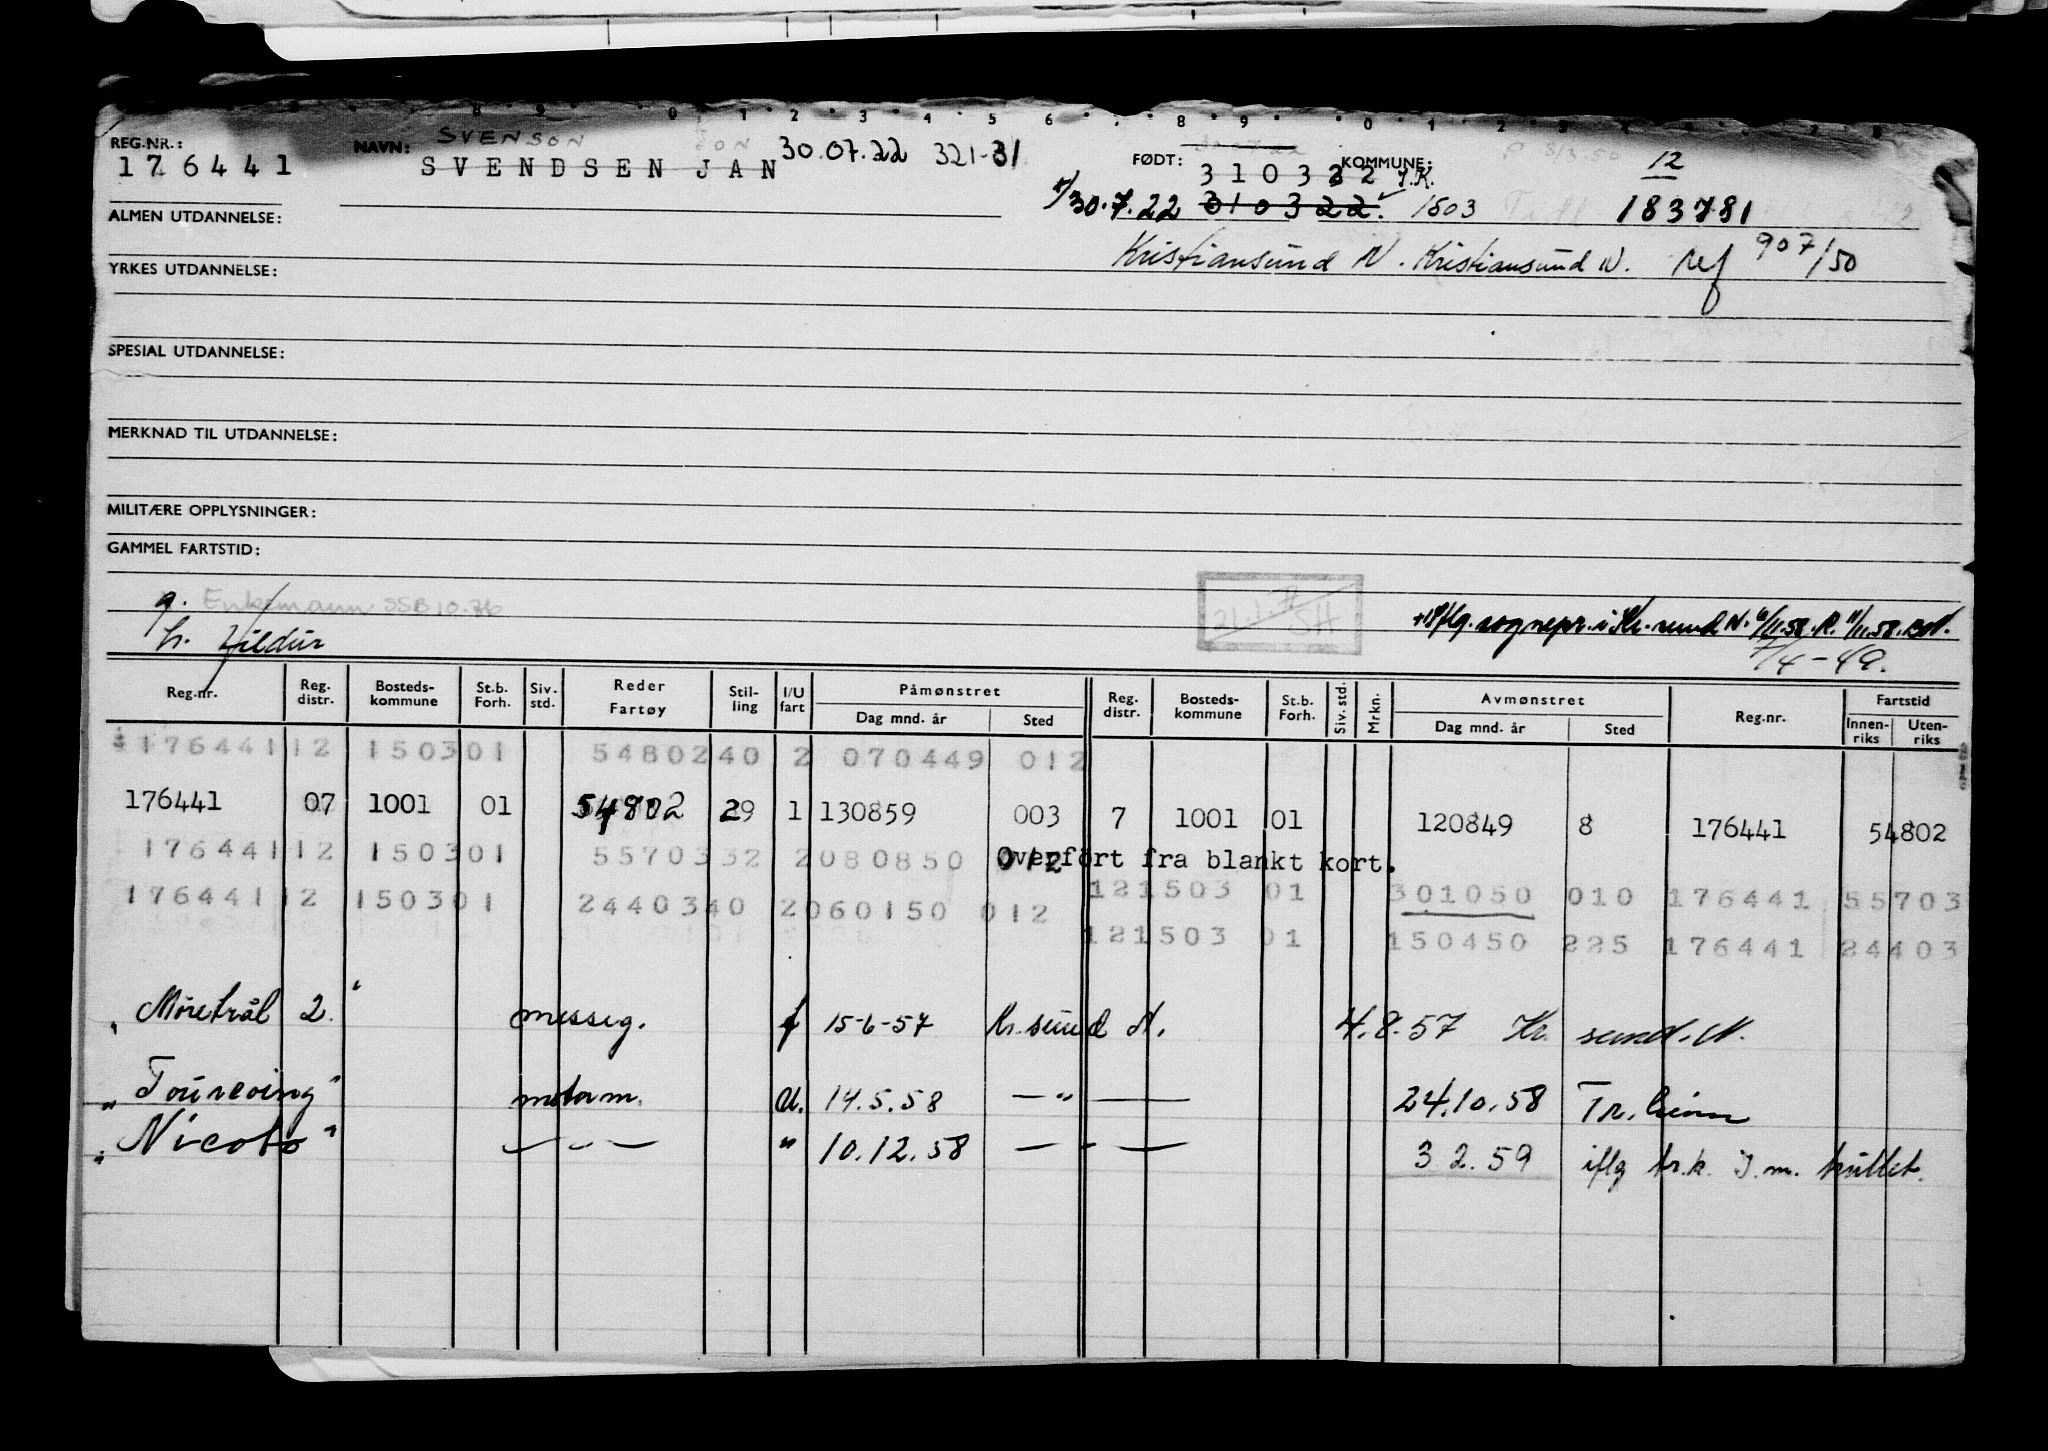 8 9 0 1 2 3 4 5 6 7 8 9 0 1 2 3 4 5 6 7 8
REG.NR.: NAVN: SVENSON JON 30.07.22 321-31 FØDT: 30.07.22 KOMMUNE: 12
176441 SVENDSEN JAN 310322 J.K.
+/30.7.22 310322. 1503 183781
ALMEN UTDANNELSE:
Kristiansund N. Kristiansund N. ref 907/50
YRKES UTDANNELSE:
SPESIAL UTDANNELSE:
MERKNAD TIL UTDANNELSE:
MILITÆRE OPPLYSNINGER:
GAMMEL FARTSTID:
g. Enkemann SSB 10.76
+) iflg. sognepr. i Kr. sund N.
h. Hildur 7/4-49.
Reg.nr. Reg. distr. Bosteds- kommune St.b. Forh. Siv. std. Reder Fartøy Stil- ling I/U fart Påmønstret Dag mnd. år Sted Reg. distr. Bosteds- kommune St.b. Forh. Siv. std. Mrkn. Avmønstret Dag mnd. år Sted Reg.nr. Fartstid Innen- riks Uten- riks
176441 12 1503 01 54802 40 2 070449 012
176441 07 1001 01 54802 29 1 130859 003 7 1001 01 120849 8 176441 54802
176441 12 1503 01 55703 32 2 080850 012 Overført fra blankt kort.
176441 12 1503 01 24403 40 2 060150 012 12 1503 01 301050 010 176441 55703
12 1503 01 150450 225 176441 24403
"Møretrål 2." messeg. f 15-6-57 Kr. sund N. 4.8.57 Kr. sund. N.
"Toureoing" motorm. U. 14.5.58 — " — 24.10.58 Tr. heim
"Nicoto" — " — " 10.12.58 — " — 3 2.59 iflg tr.k. J.m. kullet.